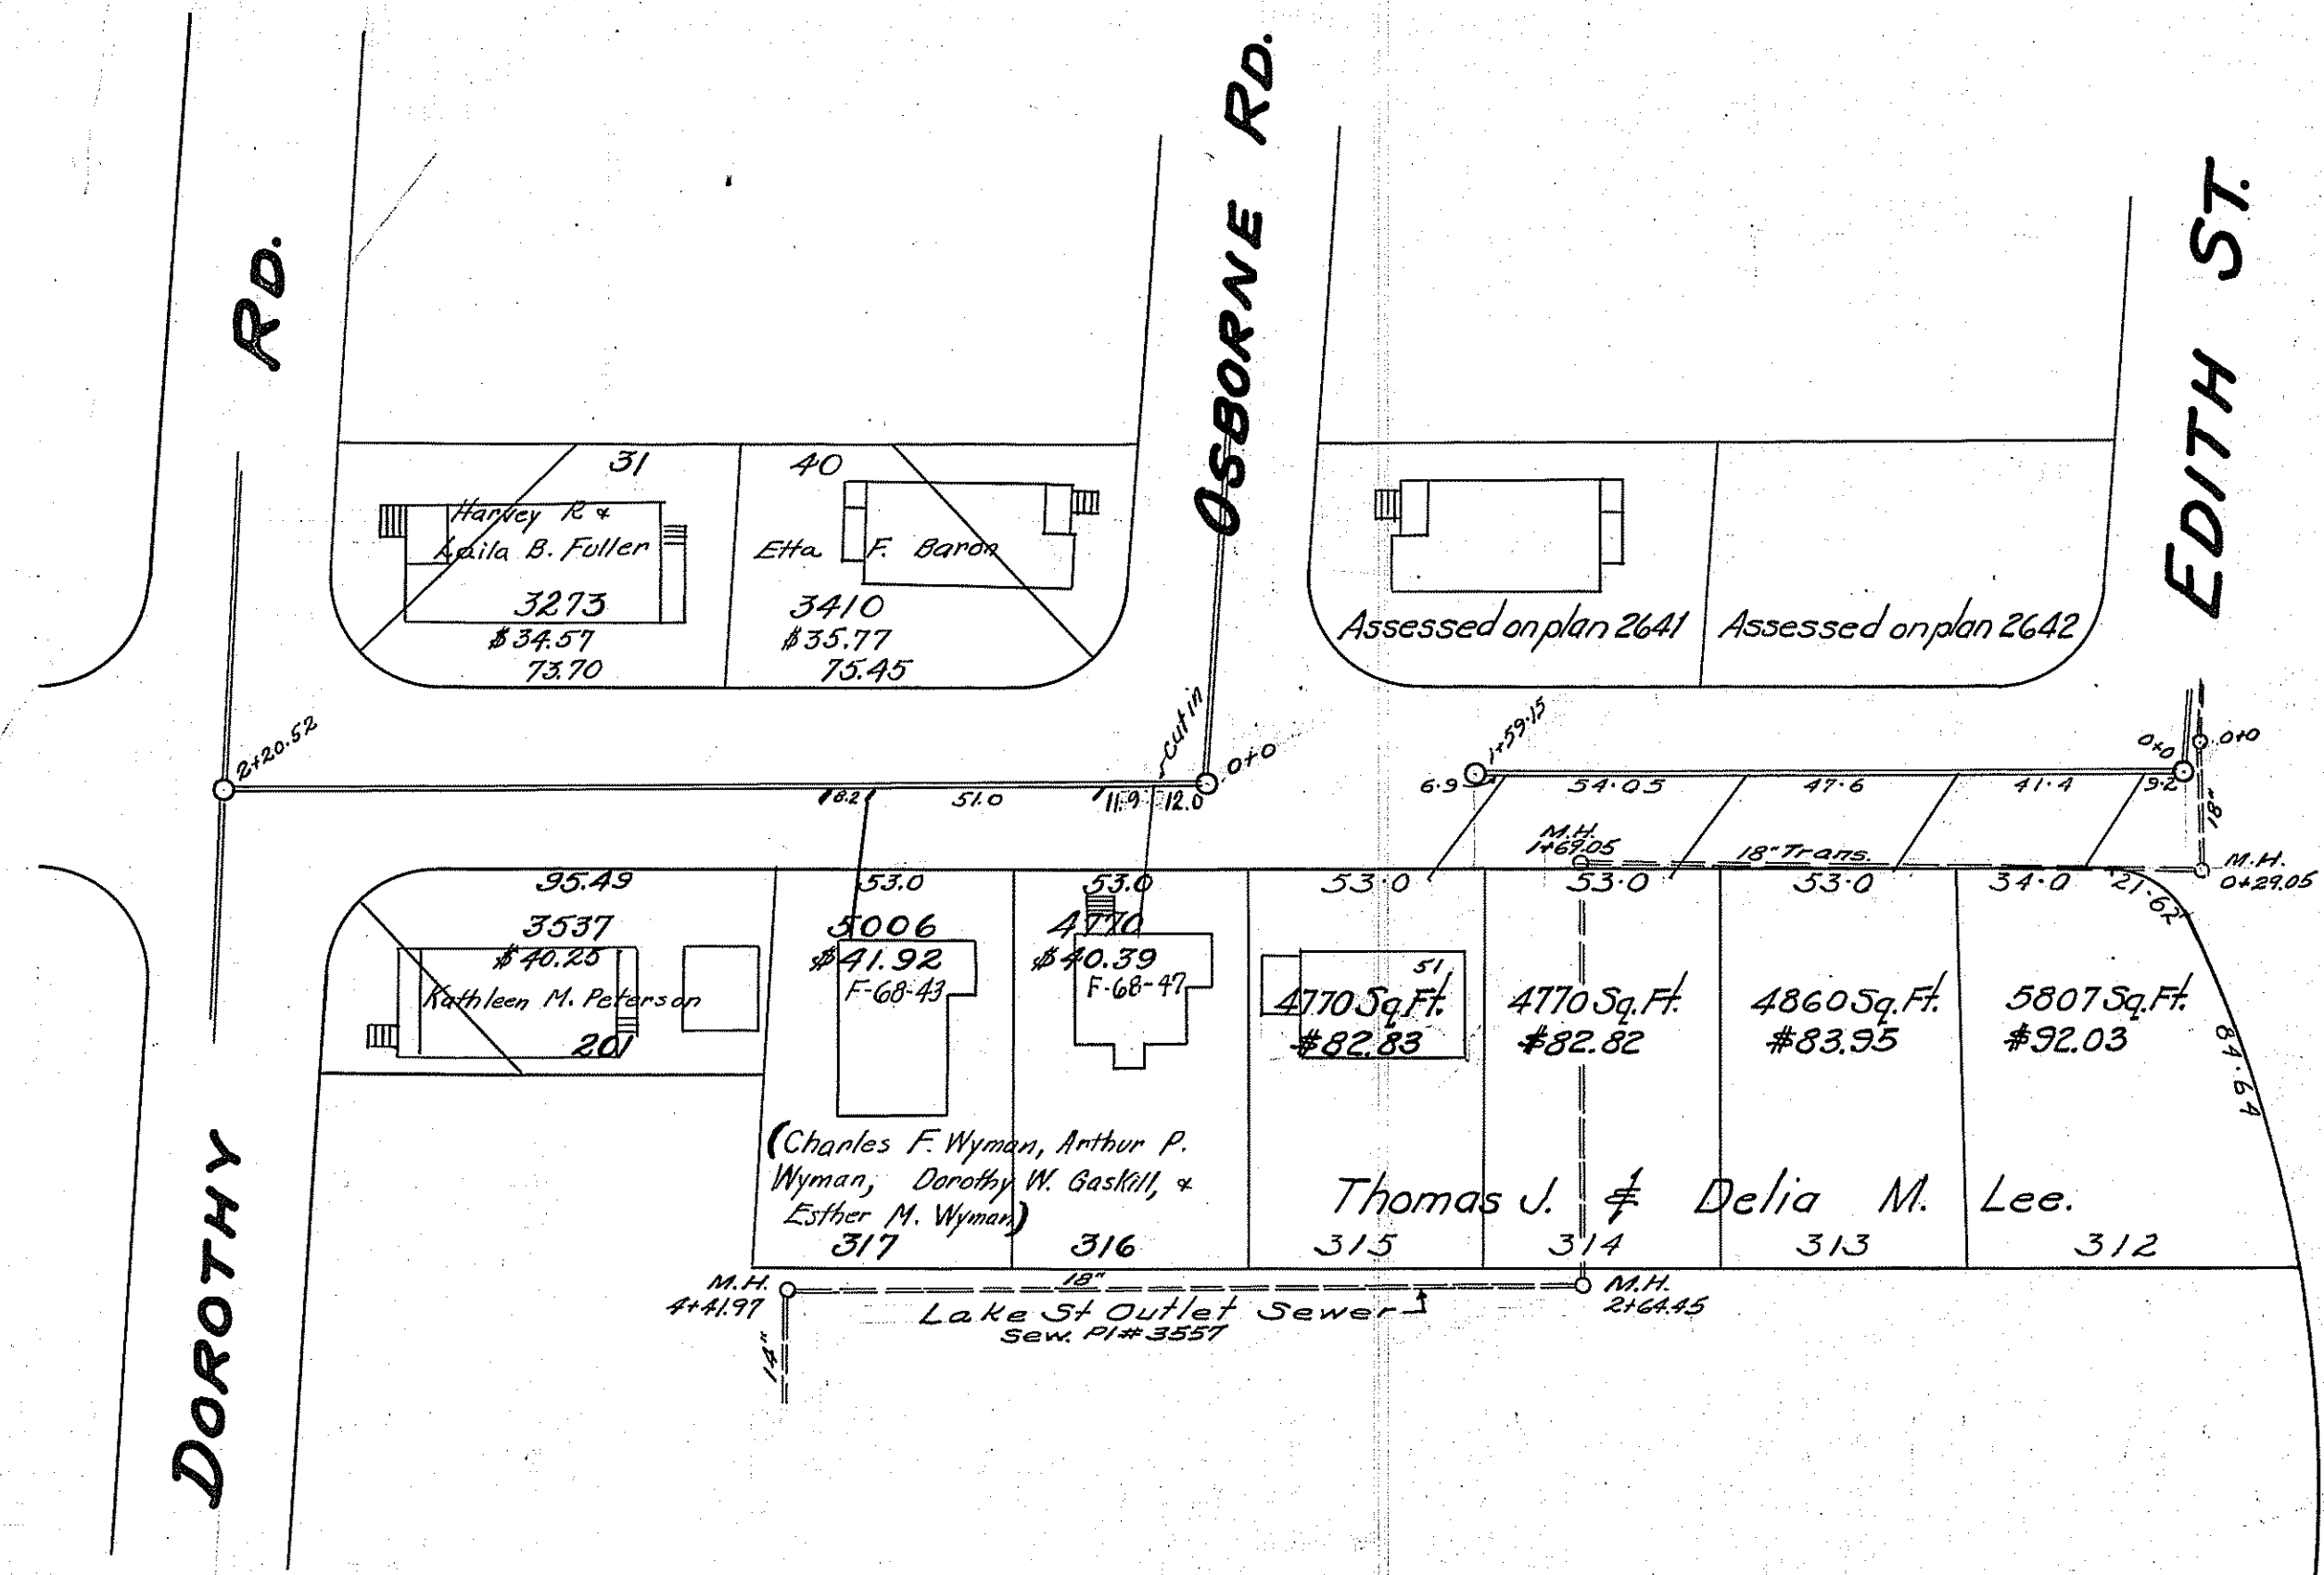 DOROTHY RD.
OSBORNE RD.
EDITH ST.
31
Harvey R &
Laila B. Fuller
3273
$34.57
73.70
40
Etta F. Baron
3410
$35.77
75.45
Assessed on plan 2641
Assessed on plan 2642
2+20.52
cut in
0+0
8.2
51.0
11.9
12.0
1+59.15
6.9
54.05
47.6
41.4
9.2
0+0
0+0
18"
M.H.
1+69.05
18" Trans.
M.H.
0+29.05
95.49
3537
$40.25
Kathleen M. Peterson
201
53.0
5006
$41.92
F-68-43
53.0
4770
$40.39
F-68-47
53.0
51
4770 Sq.Ft.
$82.83
53.0
4770 Sq.Ft.
$82.82
53.0
4860 Sq.Ft.
$83.95
34.0
21.62
5807 Sq.Ft.
$92.03
84.64
(Charles F. Wyman, Arthur P.
Wyman, Dorothy W. Gaskill, &
Esther M. Wyman)
Thomas J. & Delia M. Lee.
317
316
315
314
313
312
M.H.
4+41.97
18"
M.H.
2+64.45
Lake St Outlet Sewer
Sew. Pl# 3557
14"